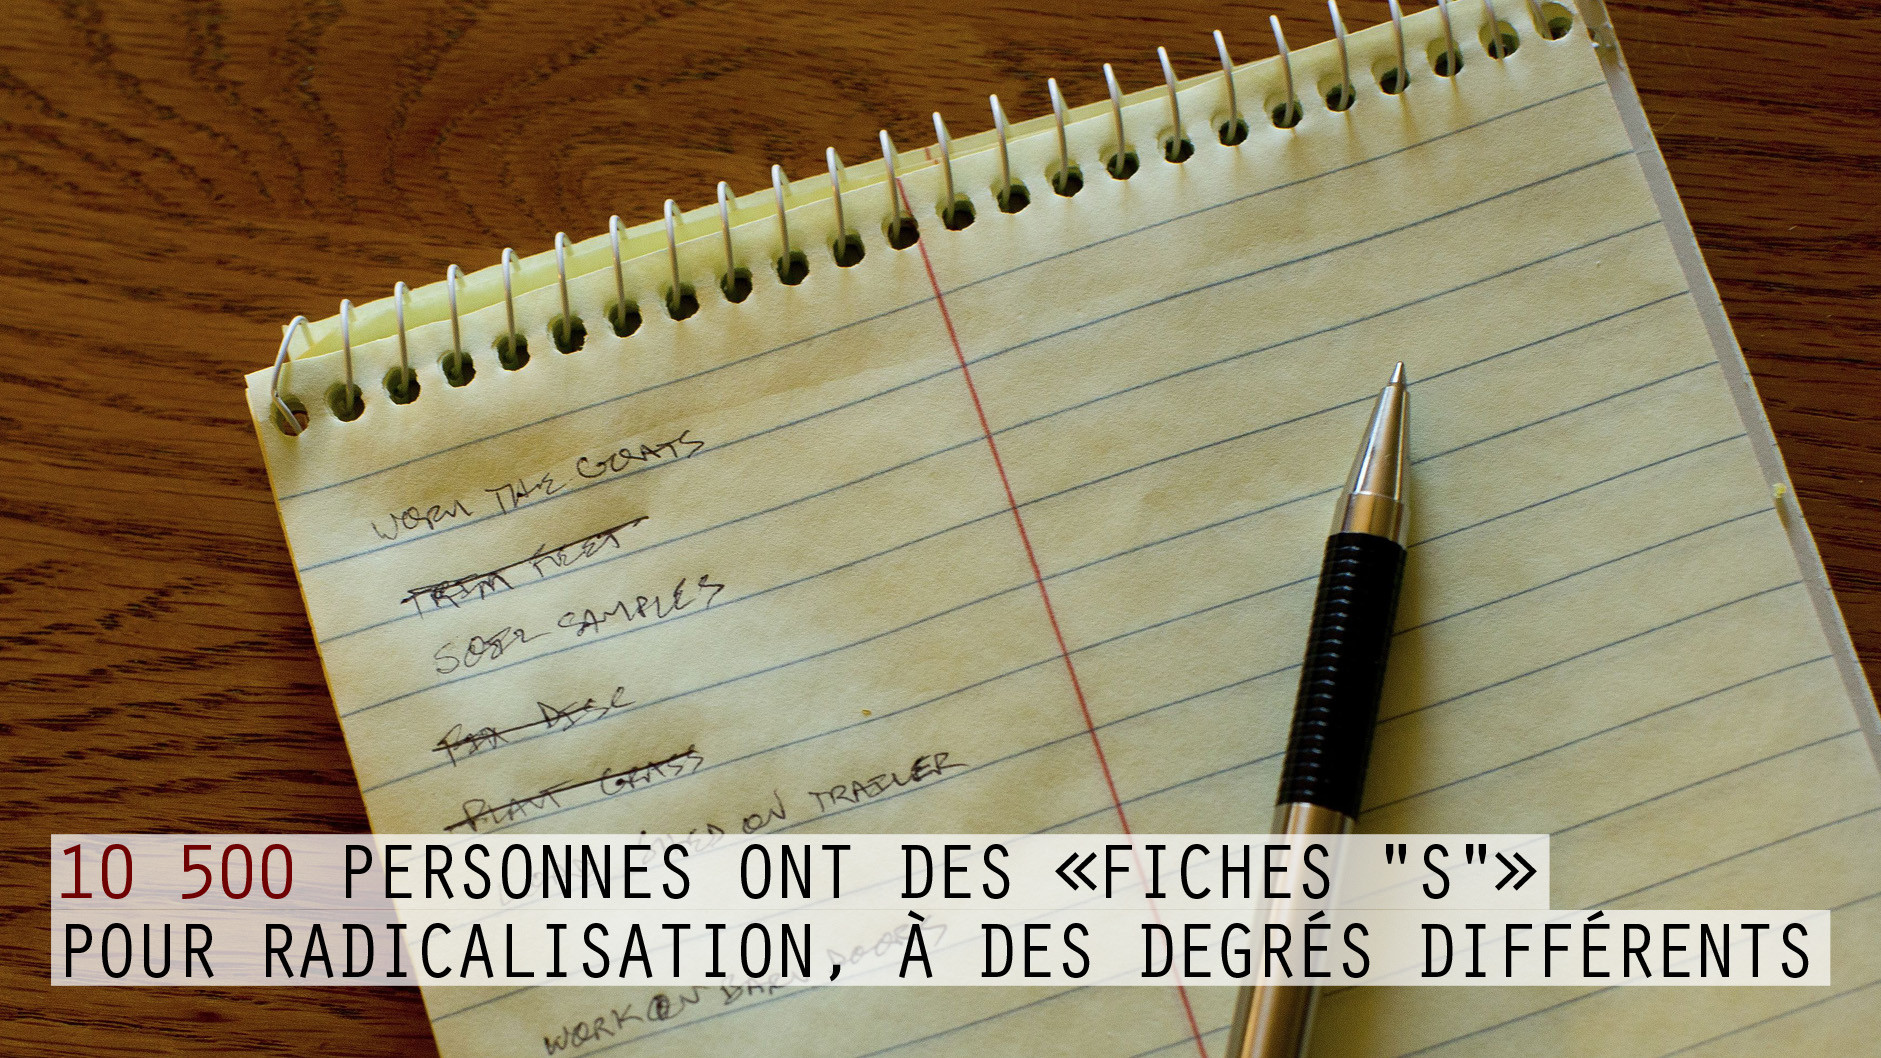 WORM THE GOATS
TRIM FEET
SOIL SAMPLES
FIX DISC
PLANT GRASS
ON TRAILER
10 500 PERSONNES ONT DES «FICHES "S"»
POUR RADICALISATION, À DES DEGRÉS DIFFÉRENTS
WORK ON BARN DOORS